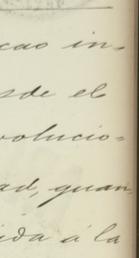 cao in-
sde el
volucio-
ad, guan-
ida á la